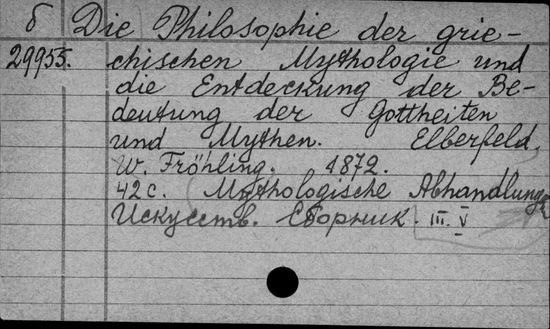 б Die Philosophie der grie-
29955. chischen Mythologie und
die Entdeckung der Be-
deutung der Gottheiten
und Mythen. Elberfeld,
W. Fröhling. 1872.
42 с. Mythologische Abhandlungen
Искусств. Сборник. III. V